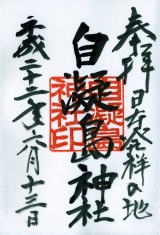 奉拝 日本発祥の地
自凝島神社
自凝島
神社印
平成二十二年六月十三日